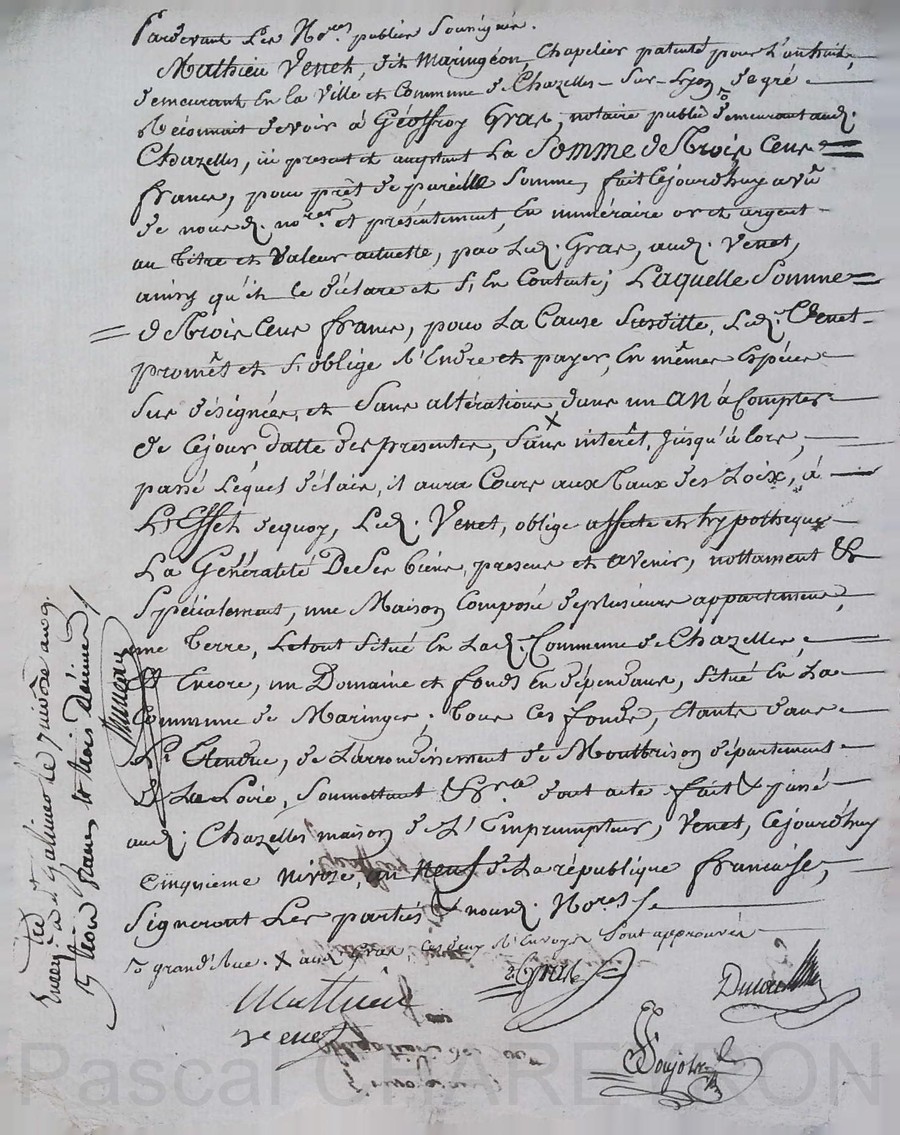 Pardevant Les No.res publics Soussignés.
Mathieu Venet, dit Maringéon, Chapelier patenté pour L'an huit,
demeurant En la Ville et Commune de Chazelles-Sur-Lyon, ℺ de gré
Reconnait devoir à Géoffroy Gras, notaire public demeurant aud.
Chazelles, ici present et acceptant La Somme de Trois Cens =
francs, pour prêt de pareille Somme, fait Cejourd'huy a vû
de nousd. no.res et présentement, En numéraire or et argent
au titre et Valeur actuelle, par Led. Gras, aud. Venet,
ainsy qu'il le déclare et S'En Contente; Laquelle Somme =
= de Trois Cens francs, pour La Cause Susditte, Led. Venet
promêt et S'oblige R'Endre et payer, En mêmes Espèces
Sus désignées, et Sans altération, dans un an à Compter
de Cejour datte des presentes, X Sans interêt, Jusqu'à lors,
passé Lequel délais, il aura Cours aux taux des Loix, à
L'Effet dequoy, Led. Venet, oblige affecte et hypothèque
La Généralité De Ses biens, presens et avenir, nottament &
Spécialement, une Maison Composée deplusieurs appartemens,
une Terre, Letout Situé En Lad. Commune de Chazelles,
& Encore, un Domaine et fonds En dépendans, Situé En La
Commune de Maringes; tous Ces fonds, Etants dans
L'Etendue, de L'arrondissement de Montbrison département
de La Loire, Soumettant & dont acte fait & passé
aud. Chazelles maison de L'Emprumpteur, Venet, Cejourd'huy
Cinquième nivôze, an Neuf de La république francaise,
Signeront Les parties & nousd. No.res
℺ grand'Rue. X aud. Gras, Ces deux R'Envoys Sont approuvés
Gras
Mathieu
venet
Goujon
à St Galmier le 7 nivôse an 9.
trois francs trois décimes
Pascal CHAREYRON